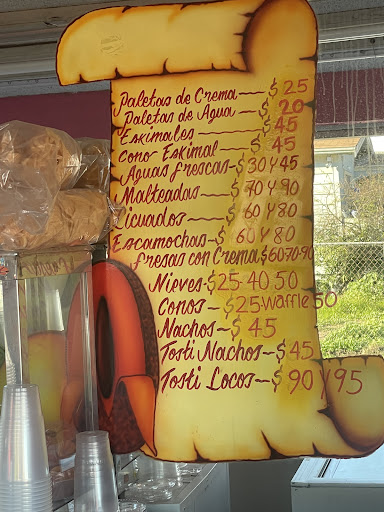 Paletas de Crema — $25
Paletas de Agua — $20
Eskimales — $45
Cono Eskimal — $45
Aguas frescas — $30 Y 45
Malteadas — $70 Y 90
Licuados — $60 Y 80
Escamochas — $60 Y 80
fresas con Crema $60-70-90
Nieves - $25-40.50
Conos — $25 Waffle 50
Nachos — $45
Tosti Nachos — $45
Tosti Locos — $90 Y 95